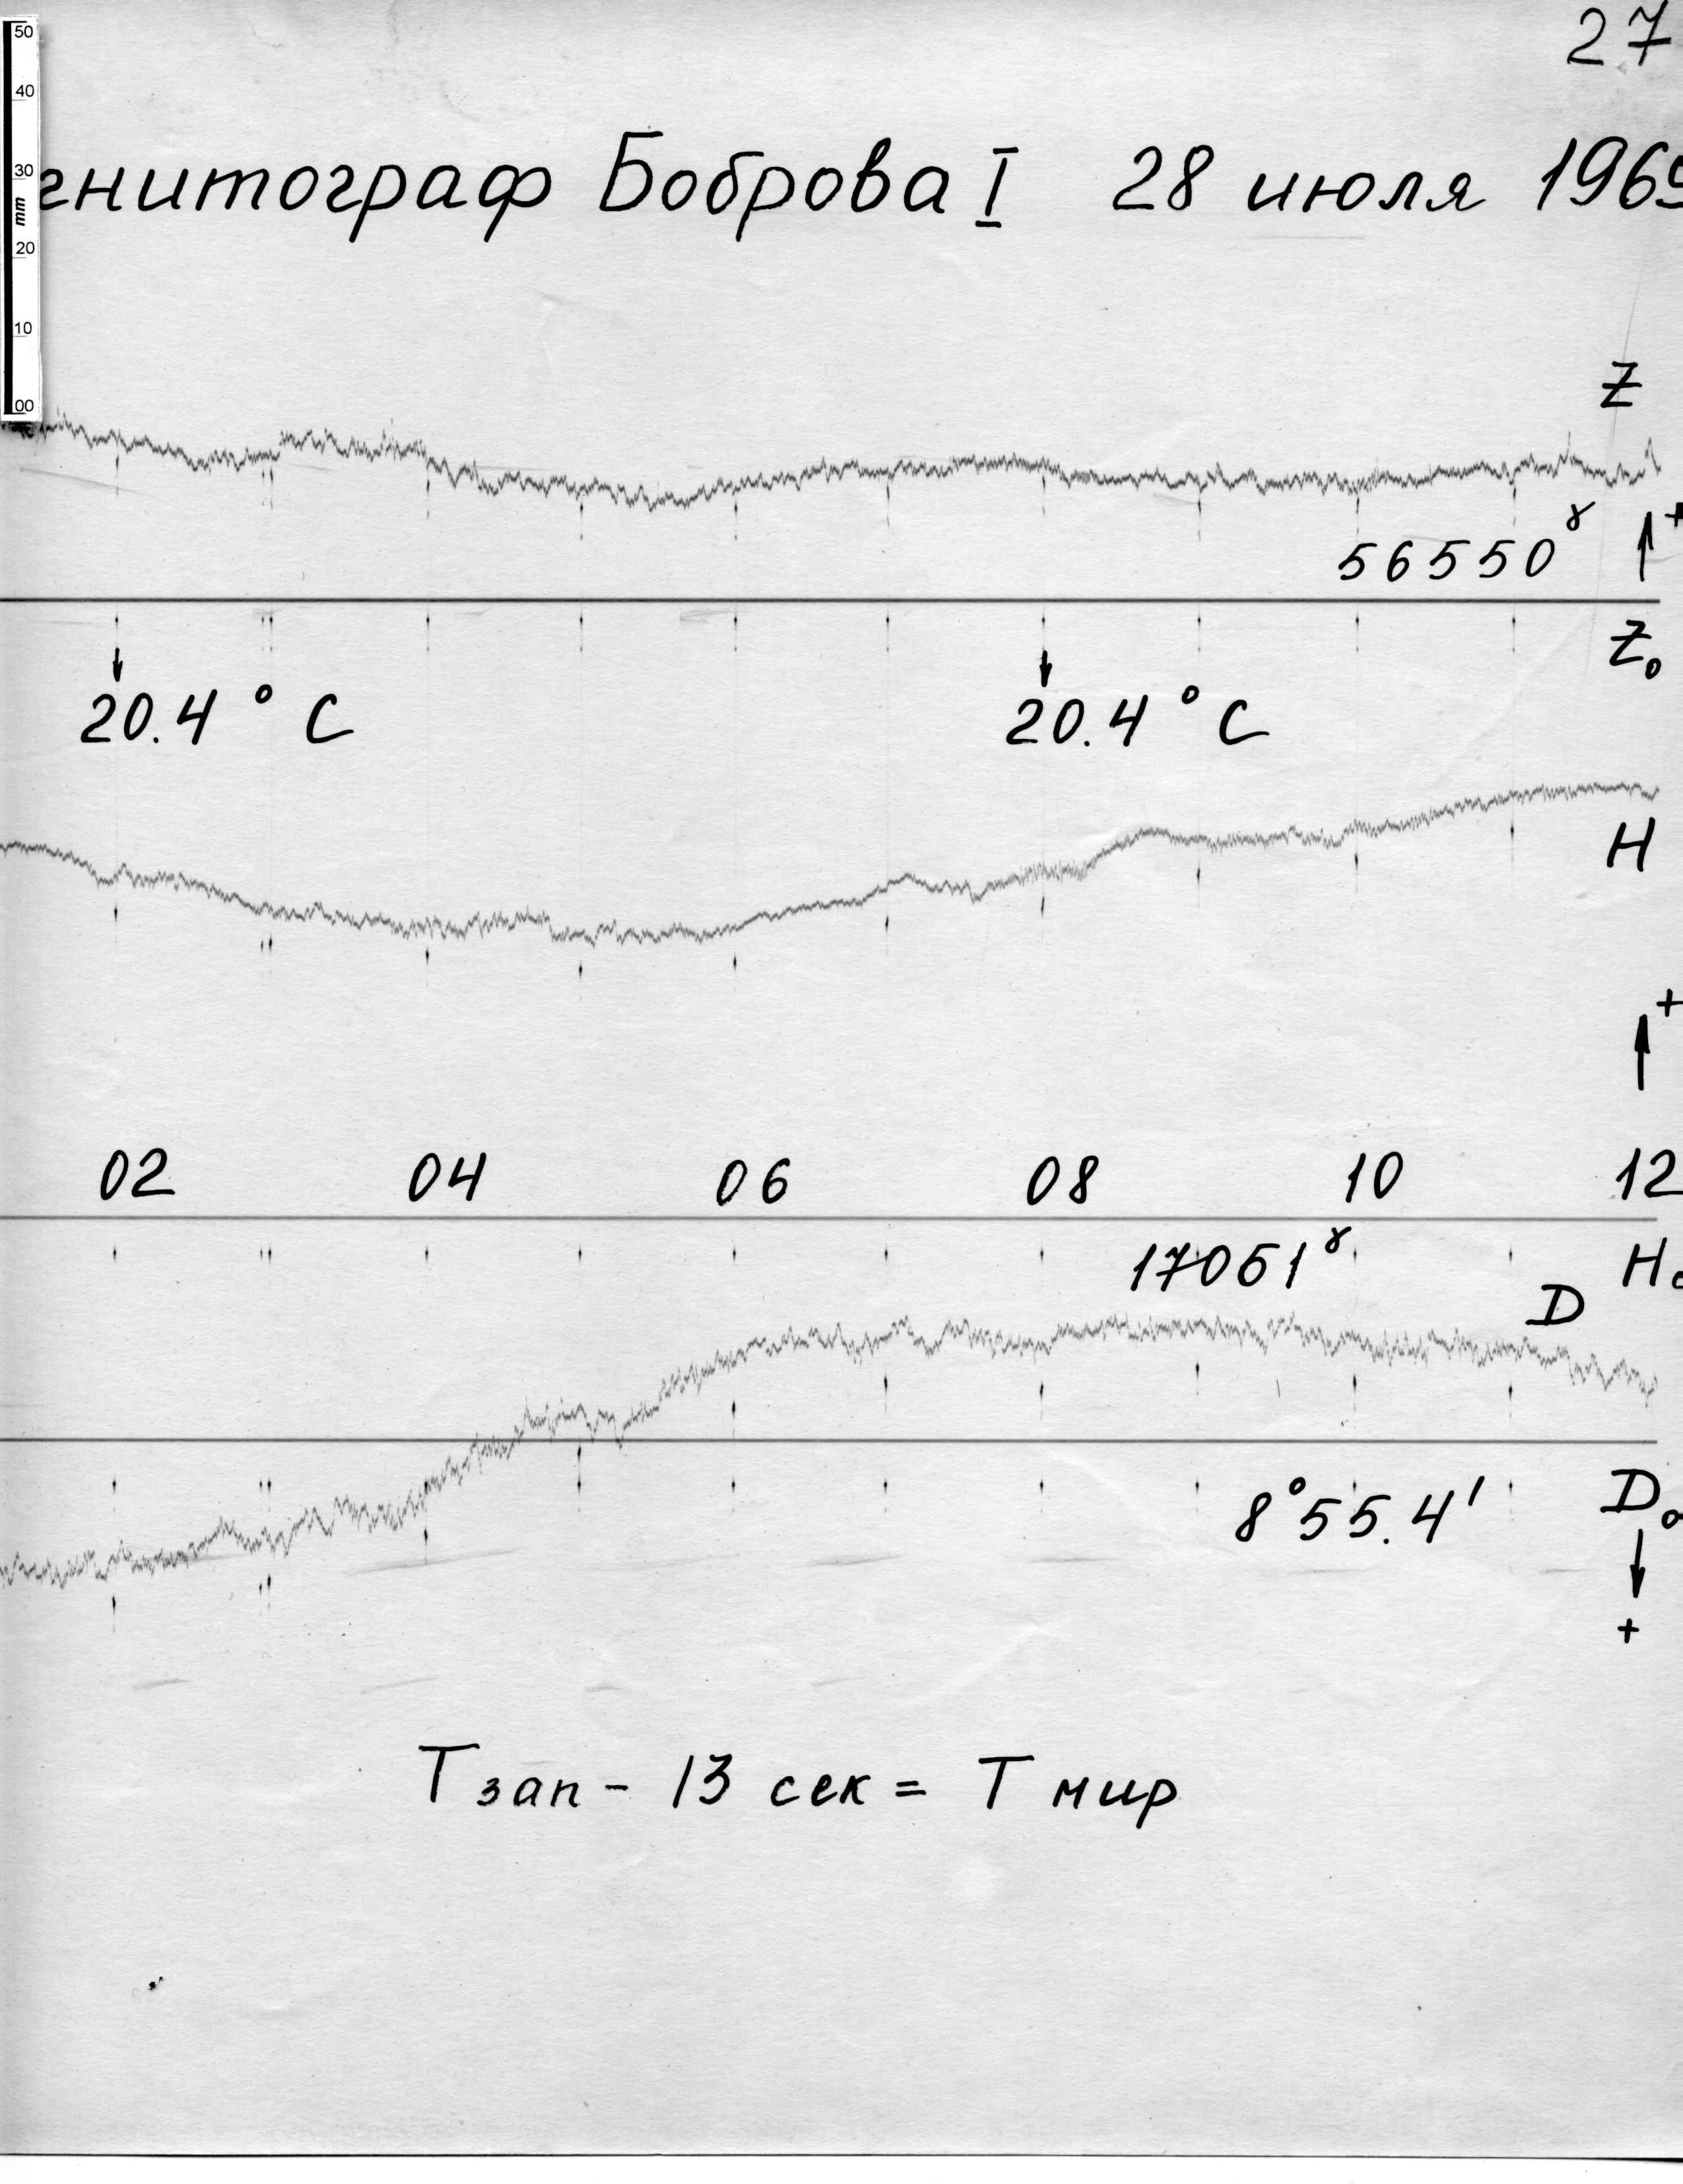 27
50
40
30
mm
20
10
00
гнитограф Боброва I 28 июля 1969
Z
56550γ +
Z₀
20.4 ° C 20.4 ° C
H
+
02 04 06 08 10 12
17051γ H₀
D
8°55.4' D₀
+
Т зап - 13 сек = Т мир